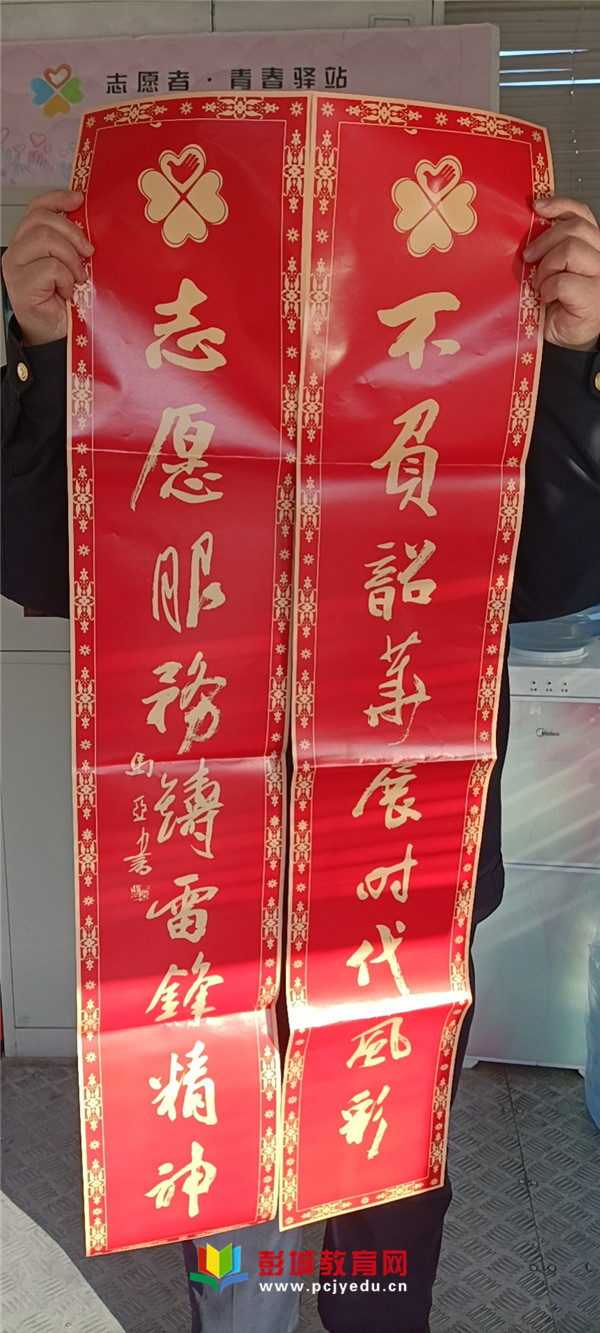 志愿者·青春驿站
不负韶华展时代风彩
志愿服務鑄雷鋒精神
馬亞
書
Midea
彭城教育网
www.pcjyedu.cn